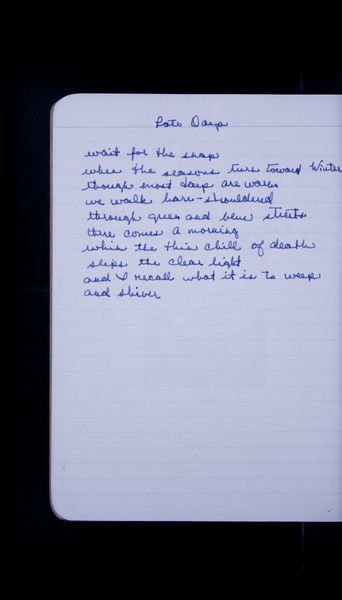 Late Days
wait for the snap
when the seasons turn toward Winter
though most days are warm
we walk bare-shouldered
through green and blue streets
there comes a morning
when the thin chill of death
slips the clear light
and I recall what it is to weep
and shiver